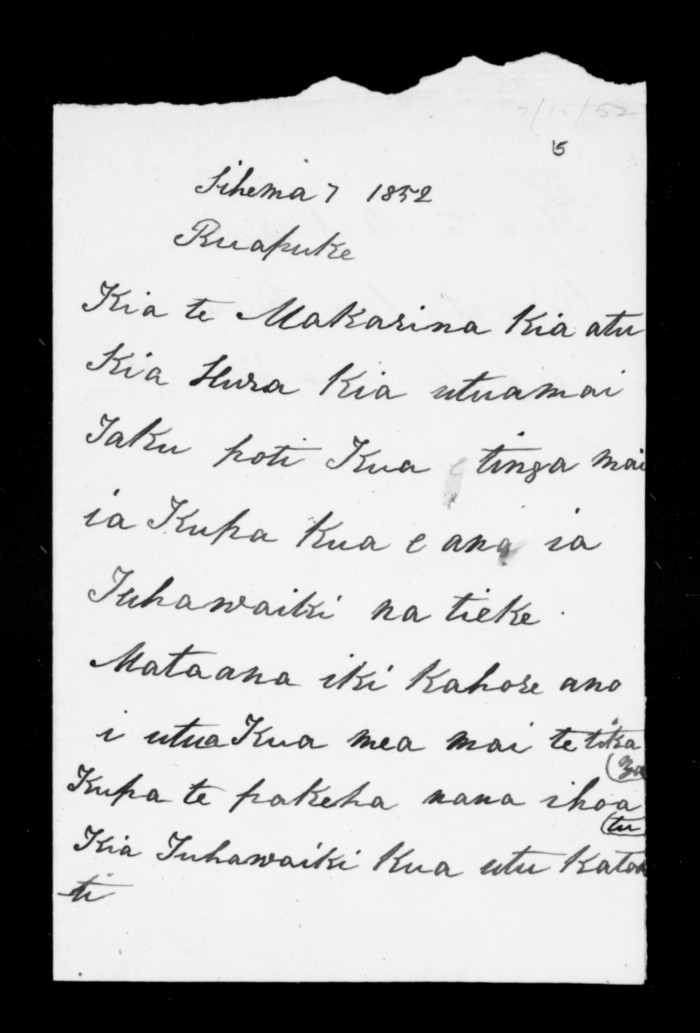 7/12/52
15
Tihema 7 1852
Ruapuke
Kia te Makarina kia atu
Kia Hura kia utuamai
Taku poti Kua tinga mai
ia Kupa kua e ana ia
Tuhawaiki na tieke.
Mataana iki kahore ano
i utua Kua mea mai te tika
(ga
Kupa te pakeha nana ihoa
(tu
Kia Tuhawaiki kua utu katoa
ti